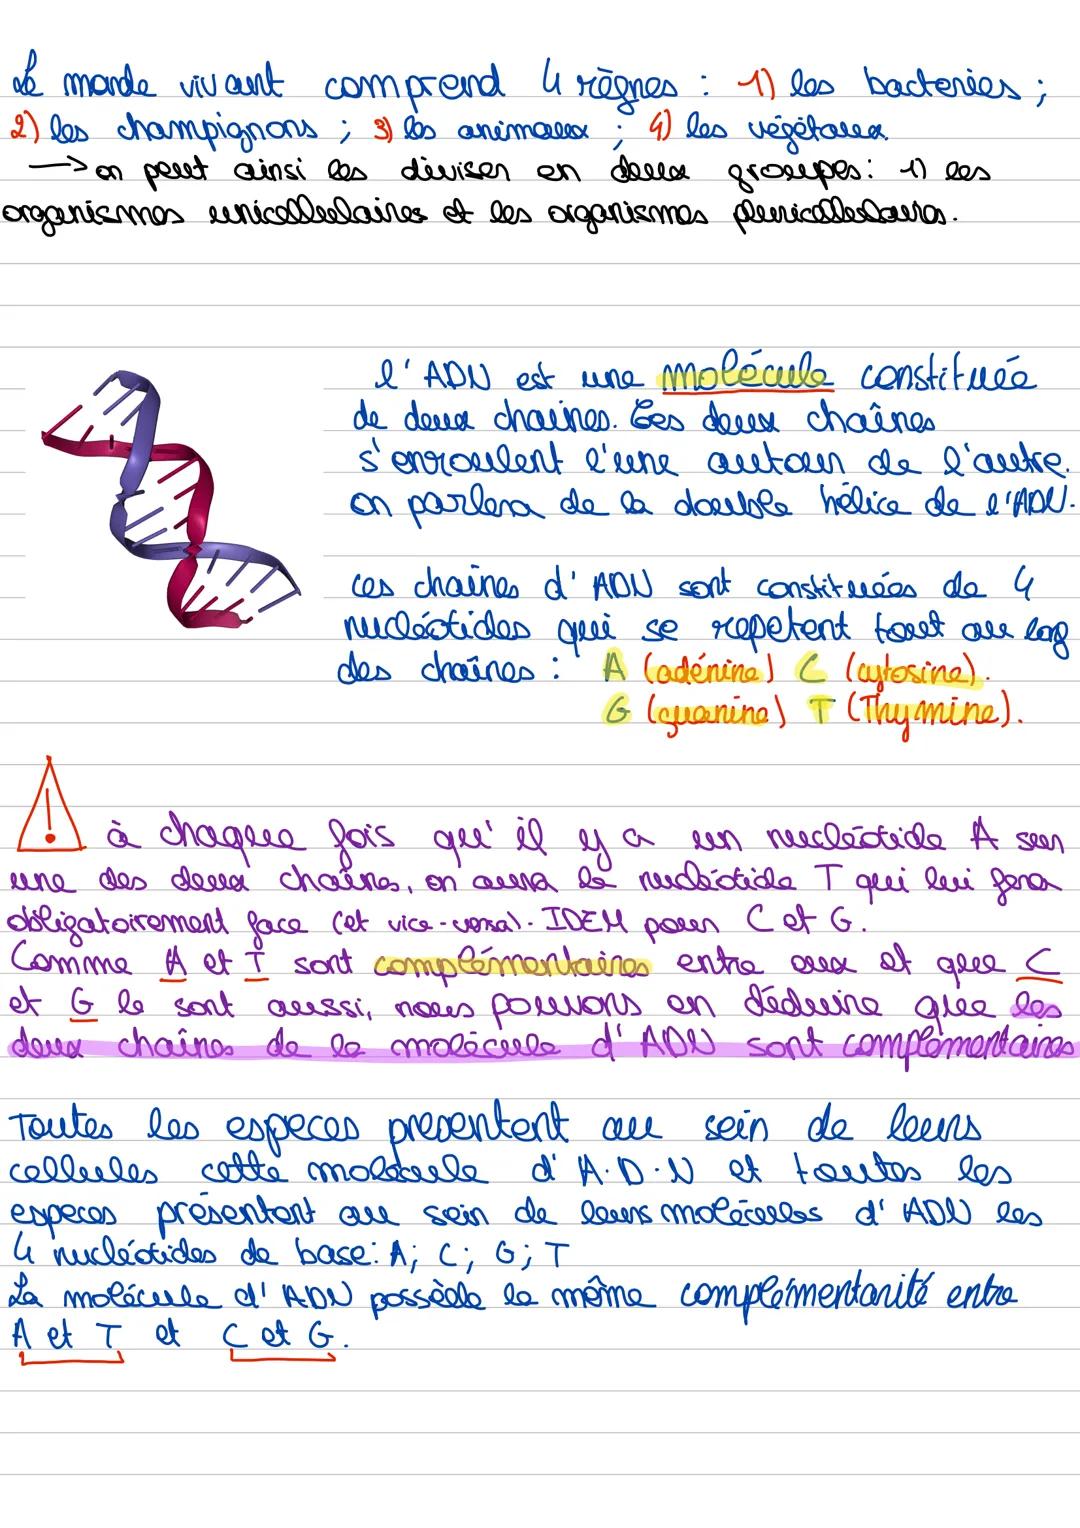 Le monde vivant comprend 4 règnes : 1) les bacteries ;
2) les champignons ; 3) les animaux ; 4) les végétaux.
→ on peut ainsi les diviser en deux groupes : 1) les
organismes unicellulaires et les organismes pluricellulaires.
l'ADN est une molécule constituée
de deux chaines. Ces deux chaînes
s'enroulent l'une autour de l'autre.
on parlera de la double hélice de l'ADN.
ces chaînes d'ADN sont constituées de 4
nucléotides qui se repetent tout au long
des chaînes : A (adénine) C (cytosine).
G (guanine) T (Thymine).
! à chaque fois qu'il y a un nucléotide A sur
une des deux chaînes, on aura le nucléotide T qui lui fera
obligatoirement face (et vice-versa). IDEM pour C et G.
Comme A et T sont complémentaires entre eux et que C
et G le sont aussi, nous pouvons en déduire que les
deux chaînes de la molécule d'ADN sont complémentaires
Toutes les especes presentent au sein de leurs
cellules cette molécule d'A.D.N et toutes les
especes présentent au sein de leurs molécules d'ADN les
4 nucléotides de base : A ; C ; G ; T
La molécule d'ADN possède la même complémentarité entre
A et T et C et G.